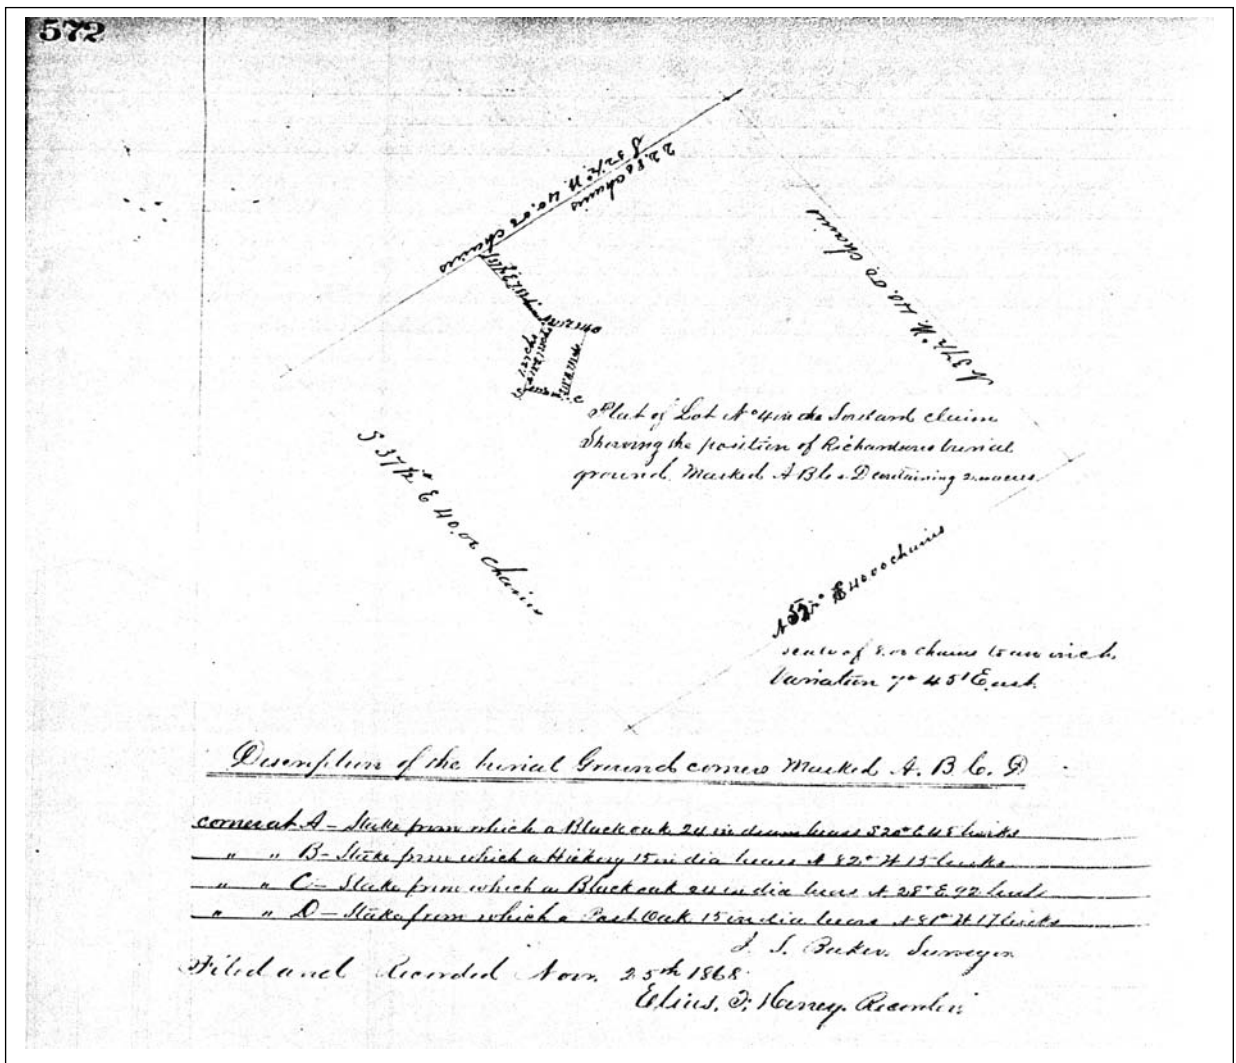 572
22.80 chains
S 52½° W. 40.00 chains
N 37½° W. 40.00 chains
S 37½° E 40.00 chains
Plat of Lot No 4 in the claim
Showing the position of Richardsons burial
ground. Marked A B C & D containing acres
N 52½° E 40.00 chains
scale of 8.00 chains to an inch
Variation 7° 45' East.
Description of the burial Ground corners Marked A. B. C. D
corner at A – Stake from which a Black oak 24 in diam bears S 20° E 48 links
" " B – Stake from which a Hickory 15 in dia bears N 82° W 15 links
" " C – Stake from which a Black oak 24 in dia bears N 28° E 92 links
" " D – Stake from which a Post Oak 15 in dia bears N 81° W 17 links
J. S. Baker. Surveyor
Filed and Recorded Nov. 25th 1868.
Elius. F. Haney. Recorder